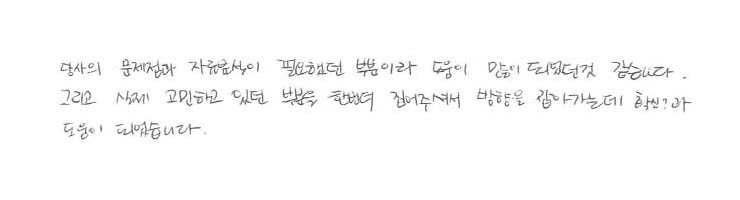 당사의 문제점과 자료분석이 필요했던 부분이라 도움이 많이 되었던것 같습니다.
그리고 실제 고민하고 있던 부분을 한번더 짚어주셔서 방향을 잡아가는데 확신?과
도움이 되었습니다.